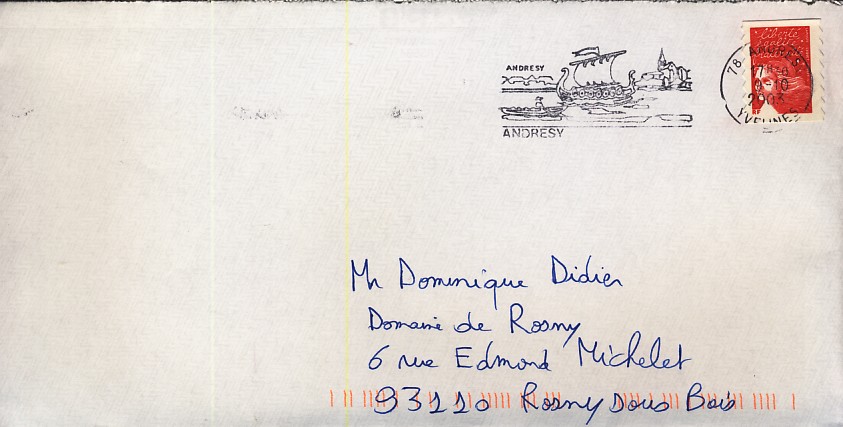 ANDRESY
ANDRESY
78 ANDRESY
9-10
2003
YVELINES
liberté
égalité
RF
Mr Dominique Didier
Domaine de Rosny
6 rue Edmond Michelet
93110 Rosny sous Bois